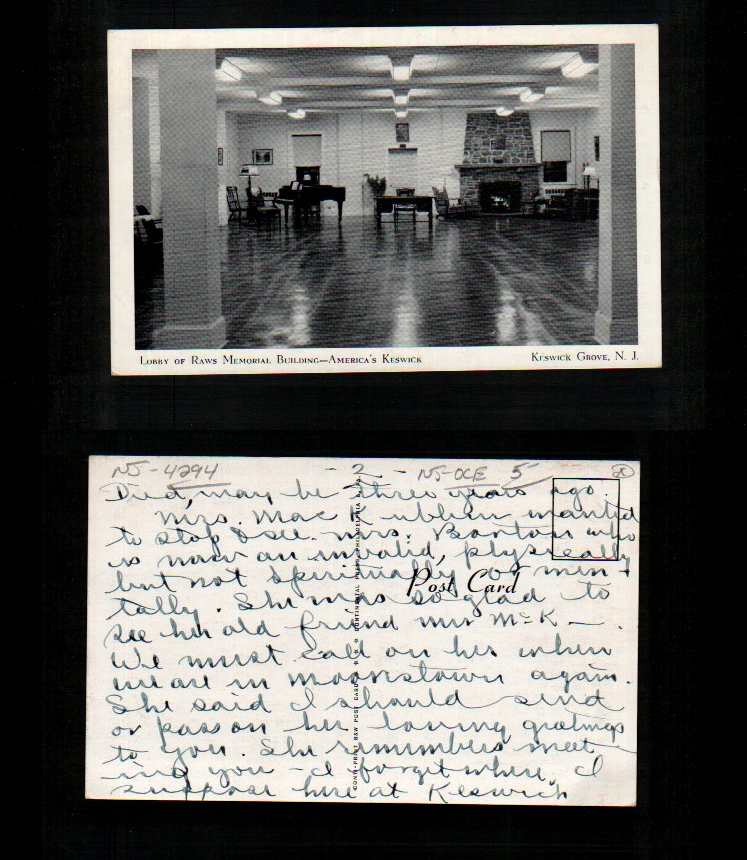 Lobby of Raws Memorial Building—America's Keswick
Keswick Grove, N. J.
NJ-4294
- 2 -
NJ-OCE 5
Died, may be three years ago.
Mrs. Mac Kubbin wanted
to stop & see Mrs. Barton who
is now an invalid, physically
but not spiritually or men-
tally. She was so glad to
see her old friend Mrs McK—.
We must call on her when
we are in Moorestown again.
She said I should send
or pass on her loving greetings
to you. She remembers meet-
ing you - I forget where, I
suppose here at Keswick
Post Card